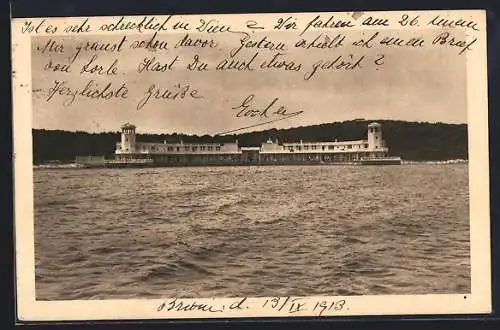 Ist es sehr schrecklich in Wien? Wir fahren am 26. wenn
Mir graust schon davor. Gestern erhielt ich einen Brief
von Lorle. Hast Du auch etwas gehört?
Herzlichste Grüße
Brioni d. 13/IX 1913